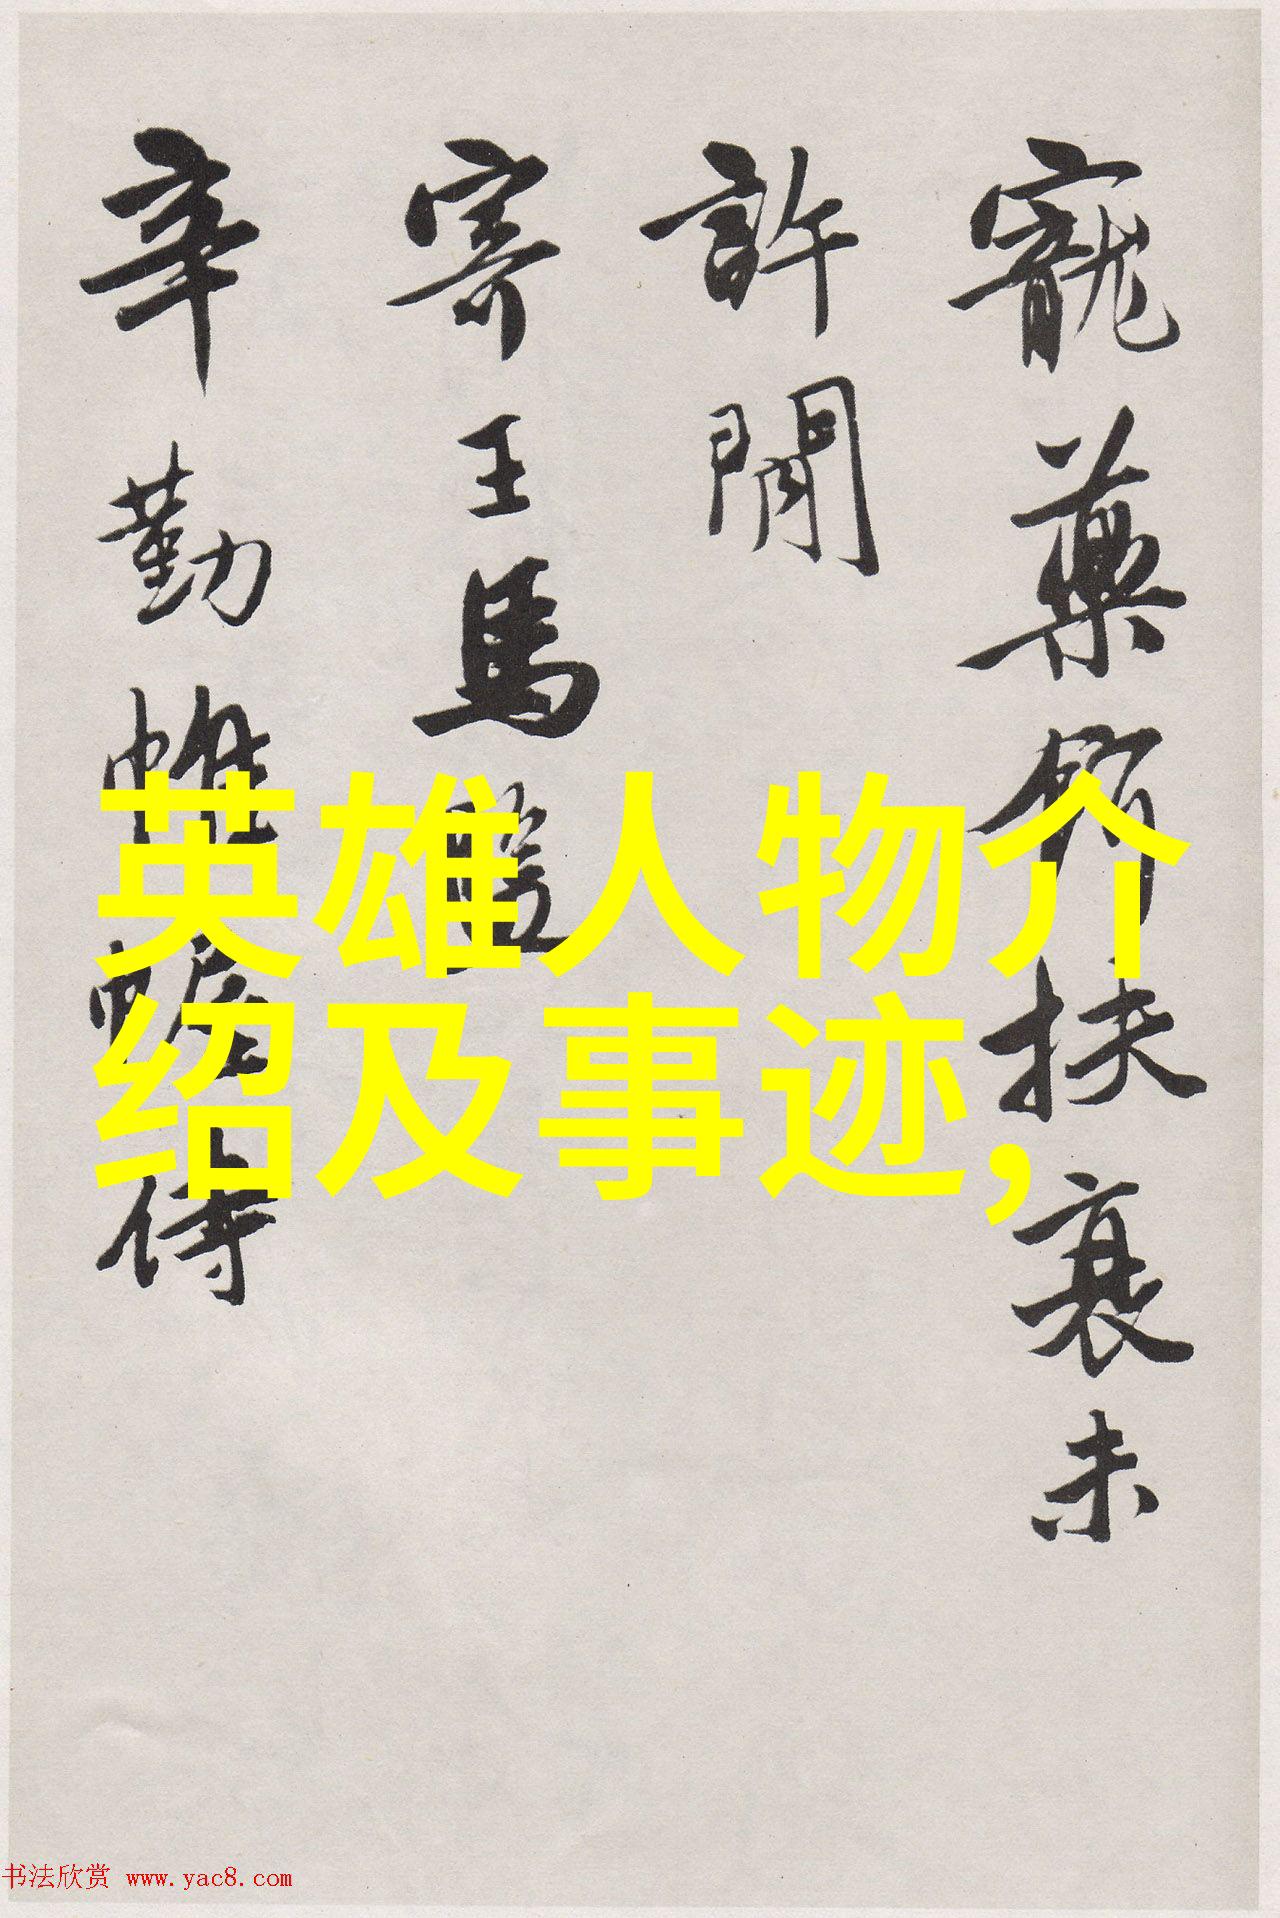 寵藥餌扶衰未
許閒
寄王馬
辛勤帷幄侍
英雄人物介
绍及事迹,
书法欣赏 www.yac8.com